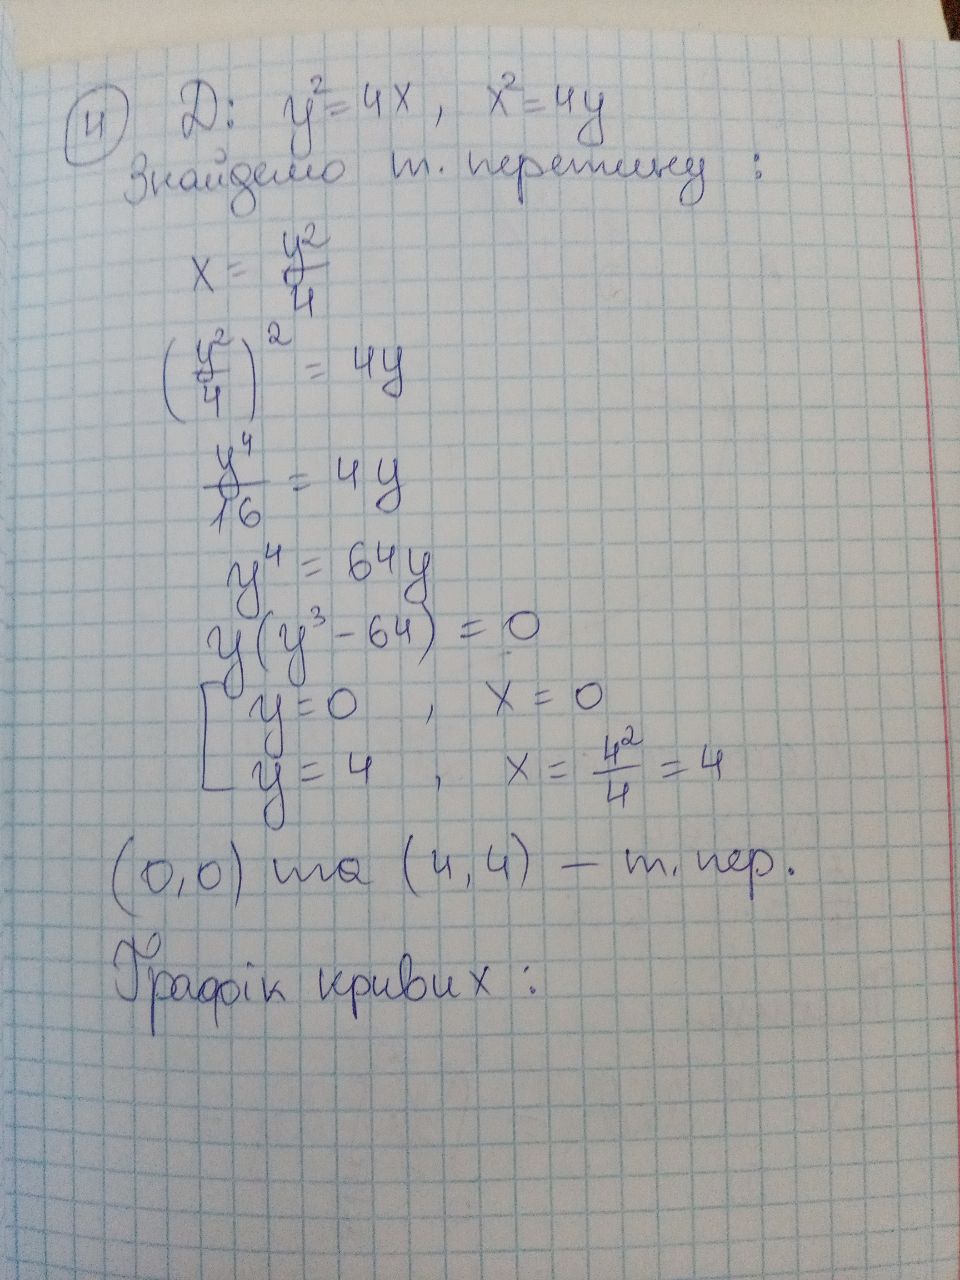 4 D: y² = 4x, x² = 4y
Знайдемо т. перетину :
x = y²/4
(y²/4)² = 4y
y⁴/16 = 4y
y⁴ = 64y
y(y³ - 64) = 0
[ y = 0 , x = 0
y = 4 , x = 4²/4 = 4
(0,0) та (4,4) – т. пер.
Графік кривих :